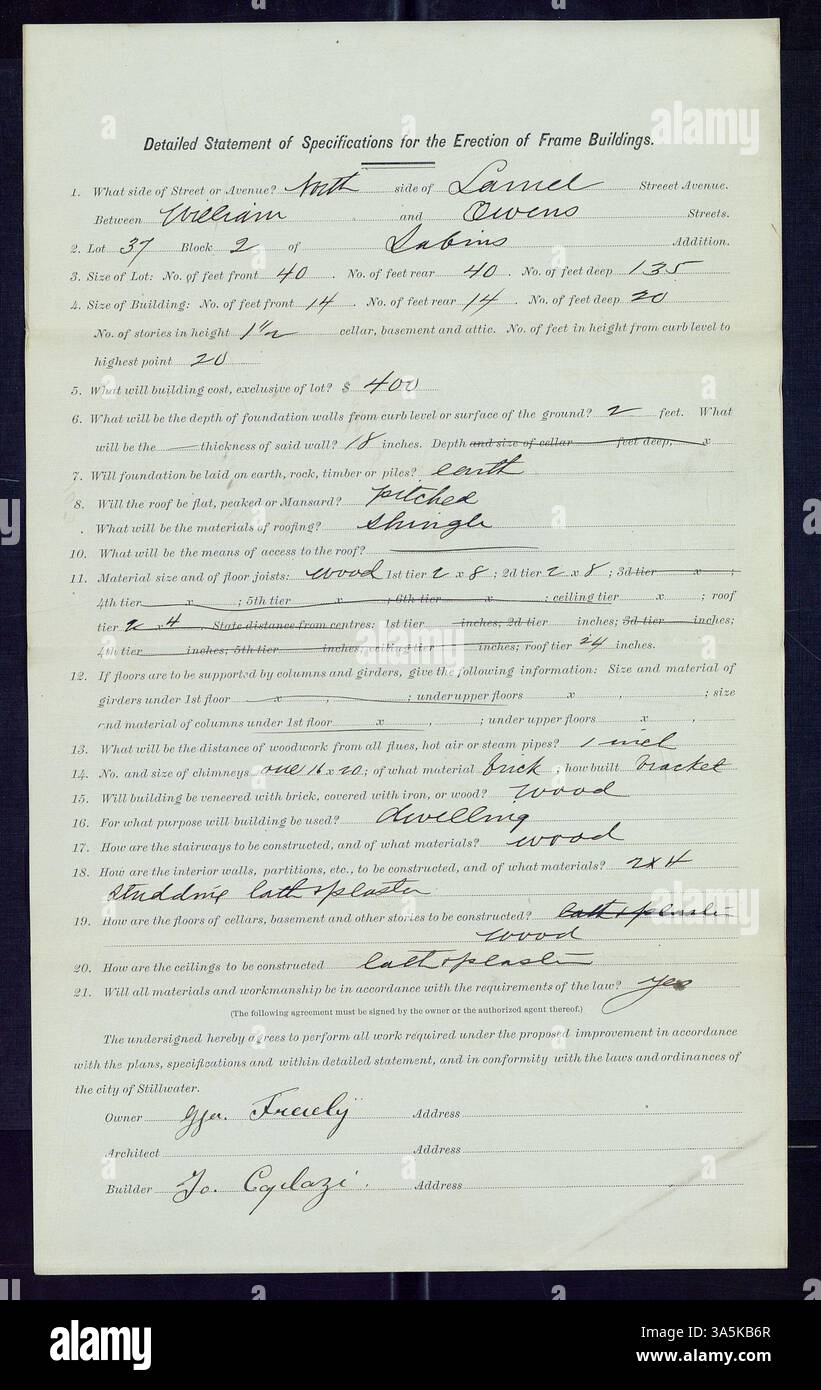 Detailed Statement of Specifications for the Erection of Frame Buildings.
1. What side of Street or Avenue? North side of Laurel Streeet Avenue.
Between William and Owens Streets.
2. Lot 37 Block 2 of Sabins Addition.
3. Size of Lot: No. of feet front 40. No. of feet rear 40. No. of feet deep 135
4. Size of Building: No. of feet front 14. No. of feet rear 14. No. of feet deep 20
No. of stories in height 1 1/2 cellar, basement and attic. No. of feet in height from curb level to
highest point 20
5. What will building cost, exclusive of lot? $ 400
6. What will be the depth of foundation walls from curb level or surface of the ground? 2 feet. What
will be the thickness of said wall? 18 inches. Depth and size of cellar feet deep, x
7. Will foundation be laid on earth, rock, timber or piles? earth
8. Will the roof be flat, peaked or Mansard? pitched
. What will be the materials of roofing? shingle
10. What will be the means of access to the roof?
11. Material size and of floor joists: wood 1st tier 2 x 8; 2d tier 2 x 8; 3d tier x ;
4th tier x ; 5th tier x ; 6th tier x ; ceiling tier x ; roof
tier 2 x 4. State distance from centres: 1st tier inches; 2d tier inches; 3d tier inches;
4th tier inches; 5th tier inches, ceiling tier inches; roof tier 24 inches.
12. If floors are to be supported by columns and girders, give the following information: Size and material of
girders under 1st floor x , ; under upper floors x , ; size
and material of columns under 1st floor x , ; under upper floors x ,
13. What will be the distance of woodwork from all flues, hot air or steam pipes? 1 inch
14. No. and size of chimneys one 16 x 20; of what material brick; how built bracket
15. Will building be veneered with brick, covered with iron, or wood? wood
16. For what purpose will building be used? dwelling
17. How are the stairways to be constructed, and of what materials? wood
18. How are the interior walls, partitions, etc., to be constructed, and of what materials? 2x4
studding lath & plaster
19. How are the floors of cellars, basement and other stories to be constructed? lath & plaster
wood
20. How are the ceilings to be constructed lath & plaster
21. Will all materials and workmanship be in accordance with the requirements of the law? yes
(The following agreement must be signed by the owner or the authorized agent thereof.)
The undersigned hereby agrees to perform all work required under the proposed improvement in accordance
with the plans, specifications and within detailed statement, and in conformity with the laws and ordinances of
the city of Stillwater.
Owner Address
Architect Address
Builder Address
alamy
alamy
Image ID: 3A5KB6R
www.alamy.com